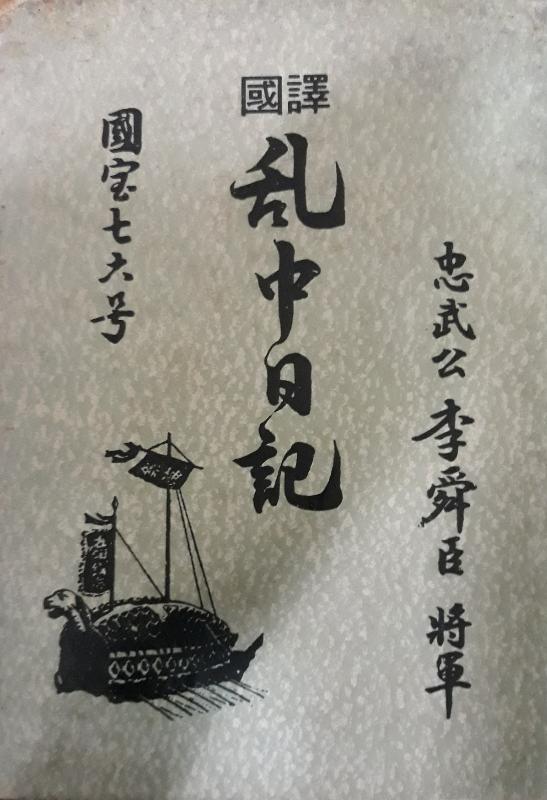 國譯
乱中日記
國宝七六号
忠武公 李舜臣 將軍